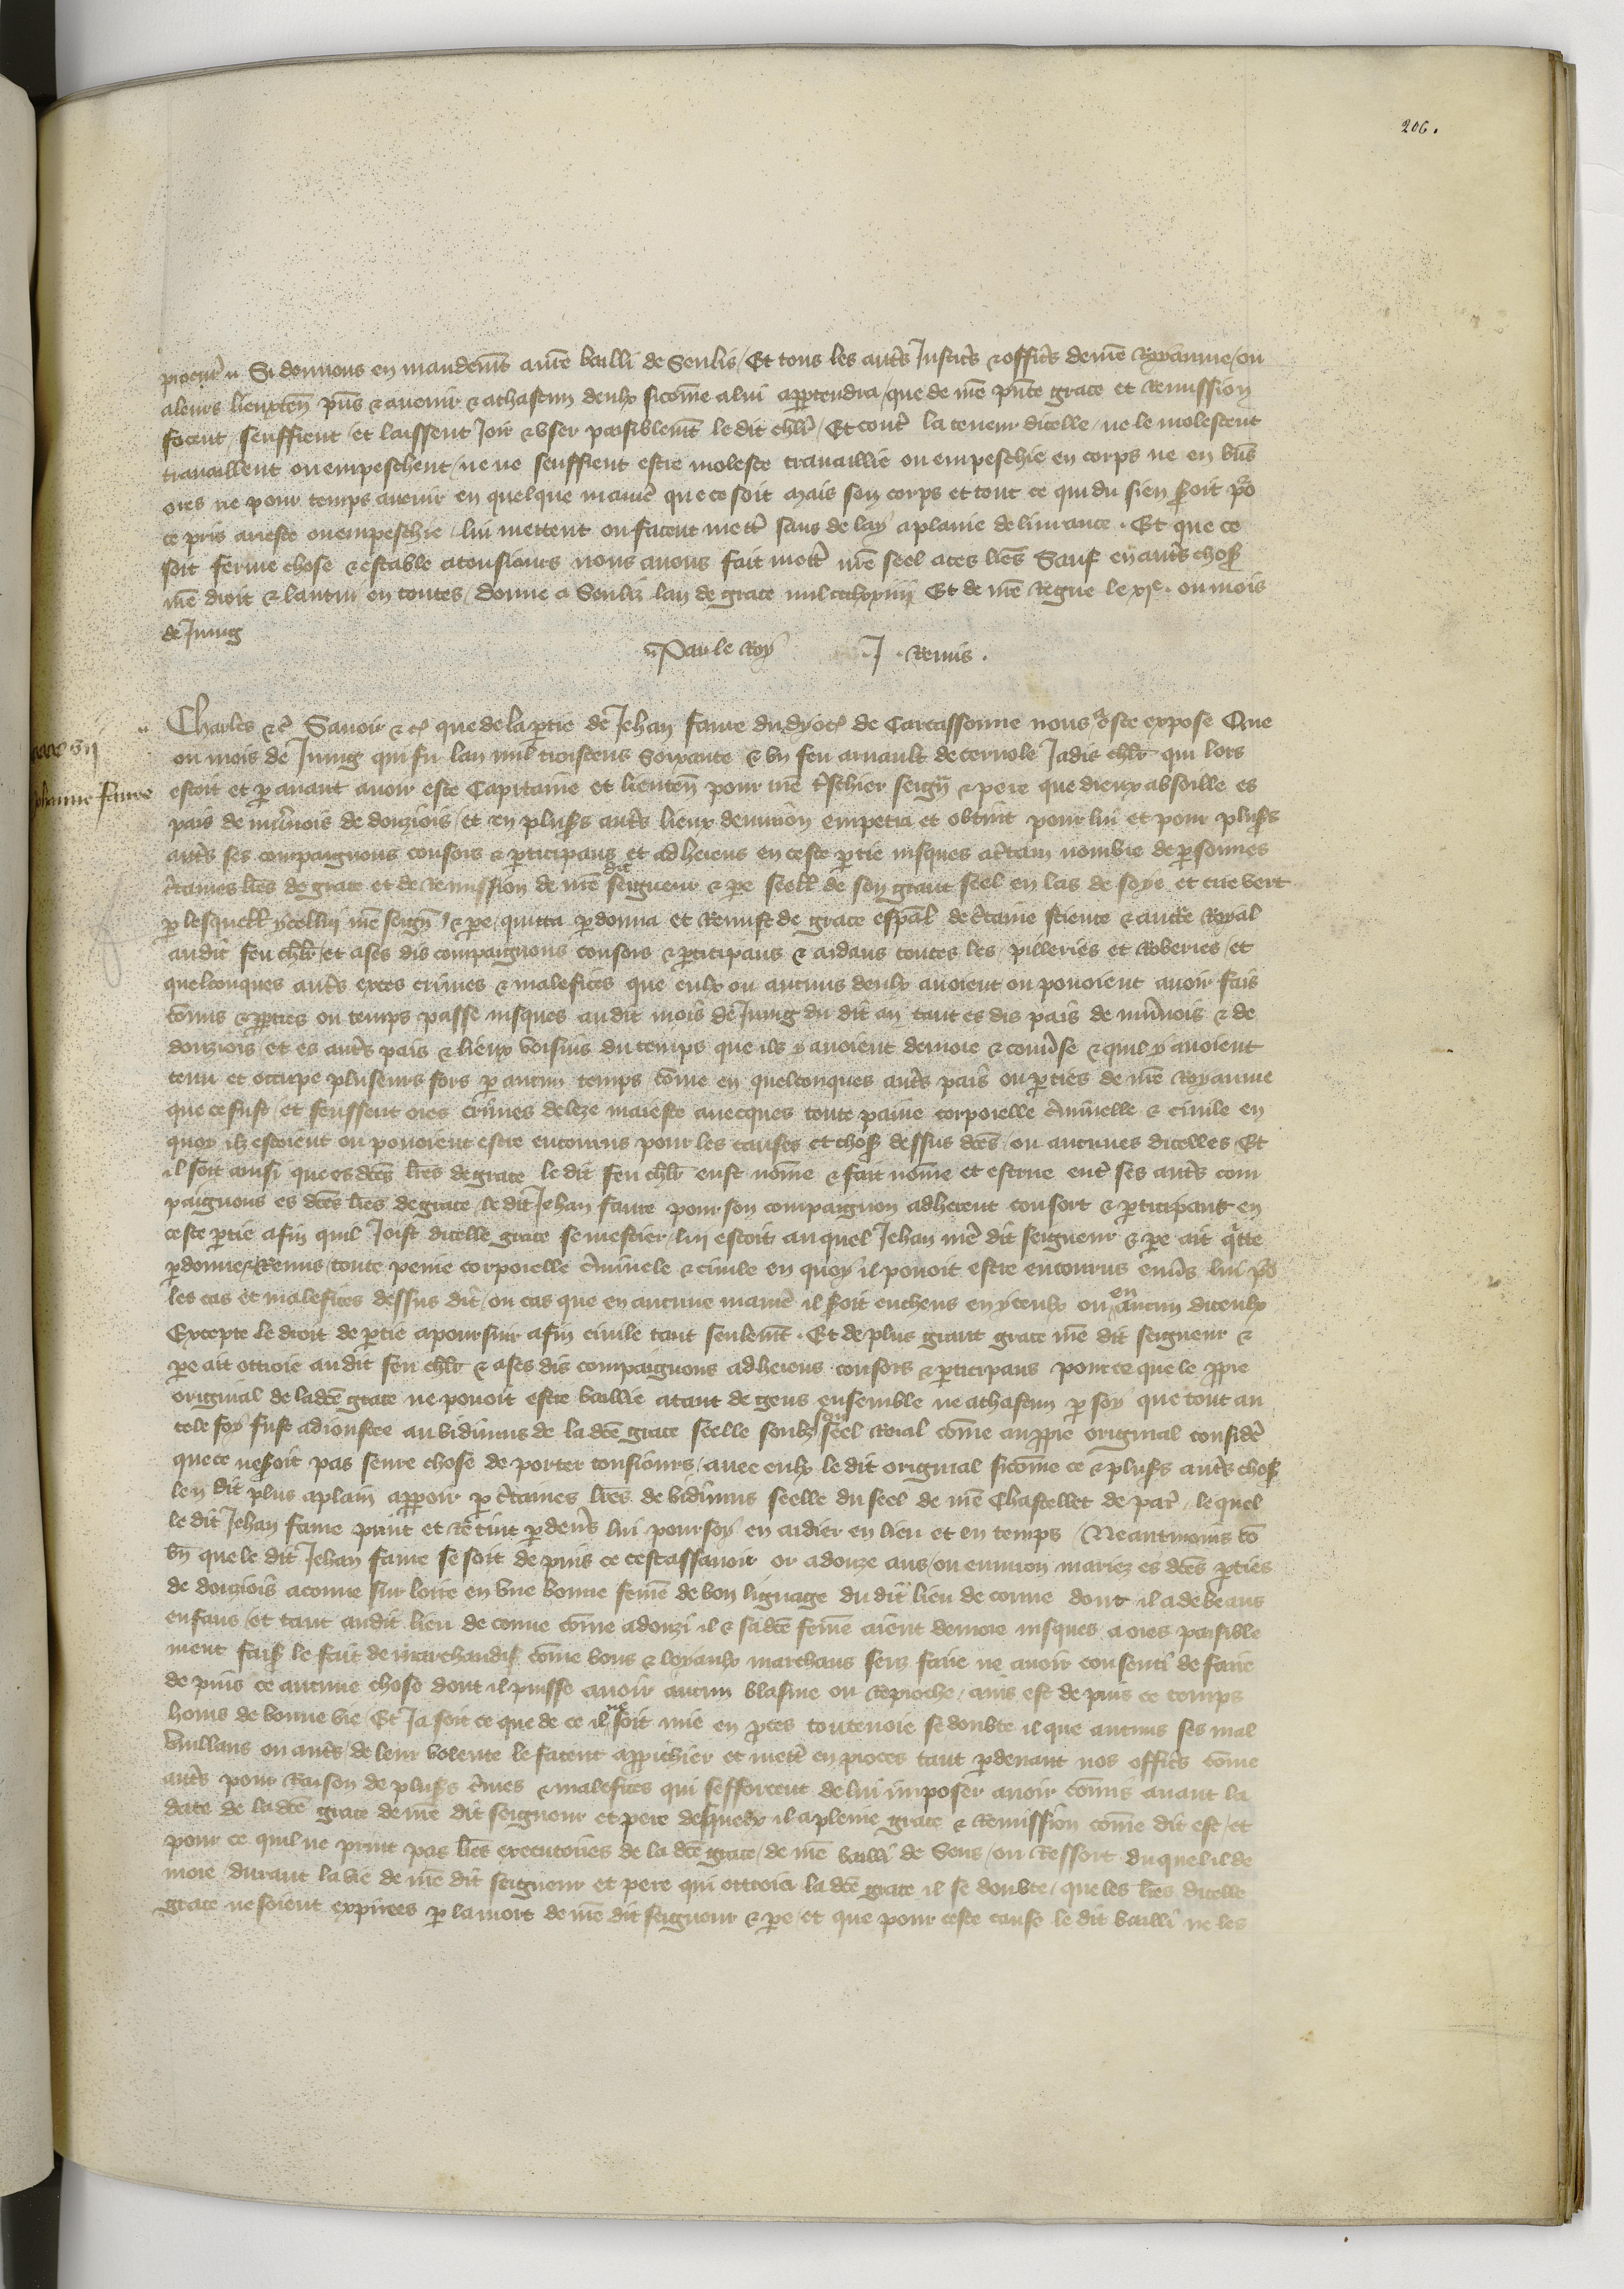 206.
procur̄ Si donnons en mandemt̄ a nr̄e bailli de Senlis / Et tous les autr̄s Justic̄s & offic̄s de nr̄e Royaume / ou
a leurs lieuxten̄ pn̄s & auenir & a chascun deulx sicōme a lui appartendra / que de nr̄e pn̄te grace et Remission
facent seuffrent et laissent Joir & vser paisiblemt̄ le dit chl̄r / Et contr̄ la teneur dicelle / ne le molestent
trauaillent ou empeschent / ne ne seuffrent estre moleste trauaillie ou empeschie en corps ne en biēs
ores ne pour temps auenir en quelque manier̄ que ce soit Mais son corps et tout ce qui du sien soit po᷑
ce pris arreste ou empeschie lui mettent ou facent mettr̄ sans delay a plaine deliurance . Et que ce
soit ferme chose & estable a tousiours nous auons fait mettr̄ nr̄e seel a ces lr̄es Sauf en autr̄s choses
nr̄e droit & lautrui en toutes / Donne a Senliz lan de grace mil ccclxxiiij Et de nr̄e Regne le xje . ou mois
de Juing
Par le Roy J . Remis .
Charles &c̄ Sauoir &c̄ que de la p̱tie de Jehan faure du dyoc̄ de Carcassonne nous a este expose Que
ou mois de Juing qui fu lan mil troiscens Soixante & vn feu arnault de ceruole Jadis chl̄r qui lors
Johanne Faure
estoit et p̱ auant auoit este Capitaine et lieuten̄ pour nr̄e t̄schier seign̄ & pere que dieux absoille es
pais de niu̾nois de donziois / et en pluss̄ autr̄s lieux denuiron empetra et obtint pour lui et pour pluss̄
autr̄s ses compaignons consors & p̱ticipans et adherens en ceste p̱tie iusques a c̄tain nombre de p̱sonnes
c̄taines lr̄es de grace et de Remission de nr̄e dit seigneur & p̱e seell̄ de son grant seel en las de soye et cire vert
p̱ lesquell̄ ycellui nr̄e seign̄ & p̱e / quitta p̱donna et Remist de grace esp̄al de c̄taine science & auctēˊ Royal
audit feu chl̄r / et a ses dis compaignons consors & p̱ticipans & aidans toutes les / pilleries et Roberies / et
quelconques autr̄s exces crimes & malefices que eulx ou aucuns deulx auoient ou pouoient auoir fais
cōmis & p̱petres ou temps passe iusques audit mois de Juing du dit an tant es dis pais de niu̾nois & de
donziois / et es autr̄s pais & lieux voisins du temps que ils y auoient demore & conu̾se & quil y auoient
tenu et occupe pluseurs fors p̱ aucun temps cōme en quelconques autr̄s pais ou p̱ties de nr̄e Royaume
que ce fust / et feussent ores crimes de leze maieste auecques toute paine corporelle c̄minelle & ciuile en
quoy ilz estoient ou pouoient estre encourus pour les causes et choses dessus dc̄es / ou aucunes dicelles Et
il soit ainsi que es dc̄es lr̄es de grace le dit feu chl̄r eust nōme & fait nōme et escrire entr̄ ses autr̄s com
paignons es dc̄es lr̄es de grace / le dit Jehan faure pour son compaignon adherent consort & p̱ticipant en
ceste p̱tie afin quil Joist dicelle grace se mestier lui estoit / au quel Jehan nr̄e dit seigneur & p̱e ait q̄tte
p̱donne & Remis / toute peine corporelle c̄minele & ciuile en quoy il pouoit estre encourus enu̾s lui po᷑
les cas et malefices dessus dit / ou cas que en aucune manier̄ il soit encheus en yceulx ou en aucun diceulx
Excepte le droit de p̱tie a poursuir afin ciuile tant seulemt̄ . Et de plus grant grace nr̄e dit seigneur &
p̱e ait ottroie audit feu chl̄r & a ses dis compaignons adherens consors & p̱ticipans pour ce que le p̱pre
original de la dc̄e grace ne pouoit estre baillie a tant de gens ensemble ne a chascun p̱ soy que tout au
tele foy fust adioustee au vidimus de la dc̄e grace seelle soubz son seel Roial cōme au p̱pre original consider̄
que ce ne soit pas seure chose de porter tousiours / auec eulx le dit original sicōme ce & pluss̄ autr̄s choses
len dit plus a plain apparoir p̱ c̄taines lr̄es de vidimus seelle du seel de nr̄e Chastellet de par̄ / le quel
le dit Jehan faure print et Retint p̱deuers lui pour soy en aidier en lieu et en temps / Neantmoins cō
bn̄ que le dit Jehan faure se soit depuis ce cestassauoir or a douze ans / ou enuiron mariez es dc̄es p̱ties
de donziois a conne sur loire en vne bonne fem̄e de bon lignage du dit lieu de conne dont il a de beaus
enfans / et tant audit lieu de conne cōme a donzi il & sa dc̄e fem̄e aient demore iusques a ores paisible
ment fais le fait de marchandise cōme bons & loyaulx marchans senz faire ne auoir consenti de faire
depuis ce aucune chose dont il puisse auoir aucun blasme ou Reproche / ains est depuis ce temps
homs de bonne vie / Et Ja soit ce que de ce il ne soit mie en p̱ces toutenoie se doubte il que aucuns ses mal
vuillans ou autr̄s / de leur volente le facent approchier et mettr̄ en proces tant p̱deuant nos offic̄s cōme
autr̄s pour Raison de pluss̄ c̄mes & malefices qui sefforcent de lui imposer auoir cōmis auant la
date de la dc̄e grace de nr̄e dit seigneur et pere desquelx il a pleine grace & Remission cōme dit est / et
pour ce quil ne print pas lr̄es executoires de la dc̄e grace / de nr̄e bailli de Sens / ou Ressort du quel il de
more durant la vie de nr̄e dit seigneur et pere qui ottroia la dc̄e grace il se doubte / que les lr̄es dicelle
grace ne soient expirees p̱ la mort de nr̄e dit seigneur & p̱e / et que pour ceste cause le dit bailli ne les